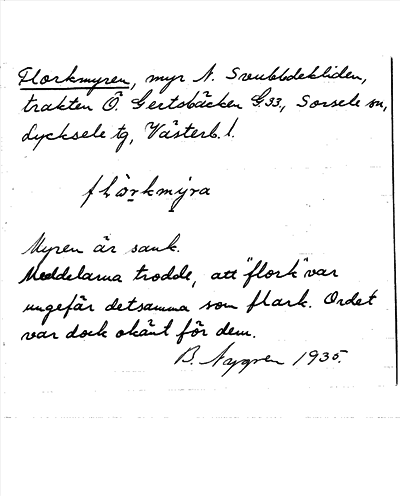 Florkmyren, myr N. Svubbdekliden,
trakten Ö. Gertsbäcken G.33, Sorsele sn,
Lycksele tg, Västerb. l.
flo̤rkmy̤ra
Myren är sank.
Meddelarna trodde, att "flork" var
ungefär detsamma som flark. Ordet
var dock okänt för dem.
B. Nygren 1935.